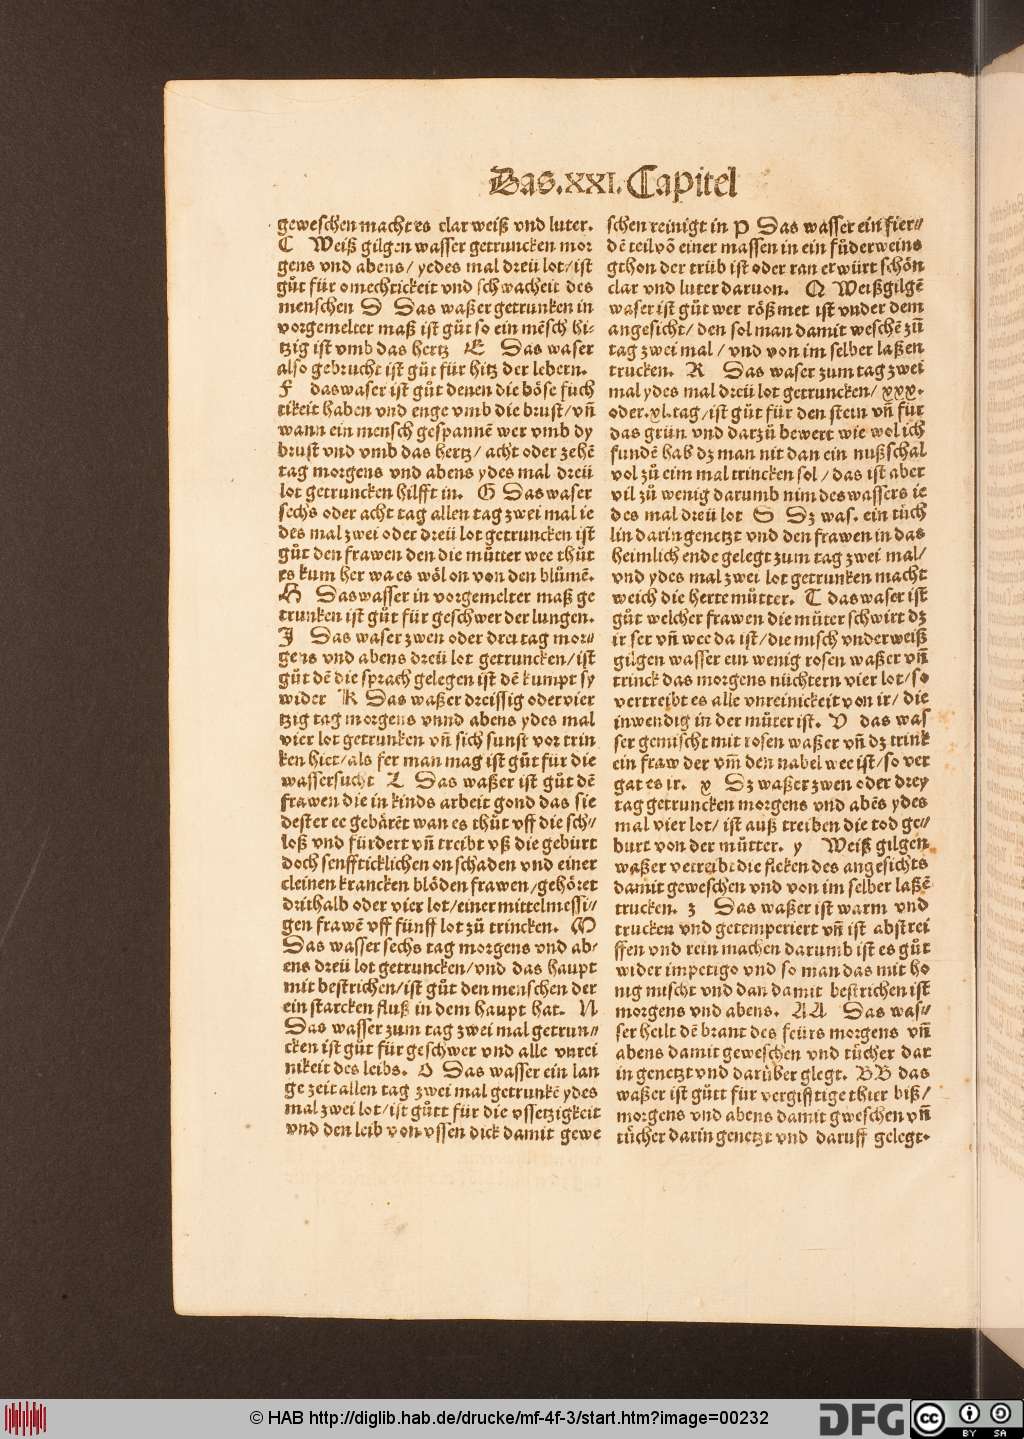 Das.XXI.Capitel
geweschen macht es clar weiß vnd luter.
C Weiß gilgen wasser getruncken mor
gens vnd abens/ yedes mal dreü lot/ist
gůt für omechtickeit vnd schwacheit des
menschen D Das waßer getrunken in
vorgemelter maß ist gůt so ein mēsch hi-
tzig ist vmb das hertz E Das waser
also gebrucht ist gůt für hitz der lebern.
F daswaser ist gůt denen die böse fůch
tikeit haben vnd enge vmb die brust/vn̄
wann ein mensch gespannē wer vmb dy
brust vnd vmb das hertz/ acht oder zehē
tag morgens vnd abens ydes mal dreü
lot getruncken hilfft in. G Das waser
sechs oder acht tag allen tag zwei mal ie
des mal zwei oder dreü lot getruncken ist
gůt den frawen den die můtter wee thůt
es kum her wa es wöl on von den blůmē.
H Das wasser in vorgemelter maß ge
trunken ist gůt für geschwer der lungen.
J Das waser zwen oder drei tag mor⸗
gens vnd abens dreü lot getruncken/ist
gůt dē die sprach gelegen ist dē kumpt sy
wider K Das waßer dreissig oder vier
tzig tag morgens vnnd abens ydes mal
vier lot getrunken vn̄ sich sunst vor trin
ken hiet/als fer man mag ist gůt für die
wassersucht L Das waßer ist gůt dē
frawen die in kinds arbeit gond das sie
dester ee gebärēt wan es thůt vff die sch⸗
loß vnd fürdert vn̄ treibt vß die geburt
doch senffticklichen on schaden vnd einer
cleinen krancken blöden frawen/gehöret
drithalb oder vier lot/einer mittelmessi⸗
gen frawē vff fünff lot zů trincken. M
Das wasser sechs tag morgens vnd ab⸗
ens dreü lot getruncken/vnd das haupt
mit bestrichen/ist gůt den menschen der
ein starcken fluß in dem haupt hat. N
Das wasser zum tag zwei mal getrun⸗
cken ist gůt für geschwer vnd alle vnrei
nikeit des leibs. O Das wasser ein lan
ge zeit allen tag zwei mal getrunkē ydes
mal zwei lot/ist gůtt für die vssetzigkeit
vnd den leib von vssen dick damit gewe
schen reinigt in P Das wasser ein fier⸗
dē teil vō einer massen in ein fůder weins
gthon der trüb ist oder ran er würt schön
clar vnd luter daruon. Q Weißgilgē
waser ist gůt wer rößmet ist vnder dem
angesicht/ den sol man damit weschē zů
tag zwei mal/ vnd von im selber laßen
trucken. R Das waser zum tag zwei
mal ydes mal dreü lot getruncken/ xxx.
oder.xl.tag/ist gůt für den stein vn̄ für
das grün vnd darzů bewert wie wol ich
fundē hab dz man nit dan ein nußschal
vol zů eim mal trincken sol/das ist aber
vil zů wenig darumb nim des wassers ie
des mal dreü lot S Dz was. ein tůch
lin darin genetzt vnd den frawen in das
heimlich ende gelegt zum tag zwei mal/
vnd ydes mal zwei lot getrunken macht
weich die herte můtter. T das waser ist
gůt welcher frawen die můter schwirt dz
ir ser vn̄ wee da ist/die misch vnder weiß
gilgen wasser ein wenig rosen waßer vn̄
trinck das morgens nüchtern vier lot/so
vertreibt es alle vnreinickeit von ir/ die
inwendig in der můter ist. V das was
ser gemischt mit rosen waßer vn̄ dz trink
ein fraw der vm̄ den nabel wee ist/so ver
gat es ir. x Dz waßer zwen oder drey
tag getruncken morgens vnd abēs ydes
mal vier lot/ ist auß treiben die tod ge⸗
burt von der můtter. y Weiß gilgen
waßer vertreibt die flecken des angesichts
damit geweschen vnd von im selber laßē
trucken. z Das waßer ist warm vnd
trucken vnd getemperiert vn̄ ist abstrei
ffen vnd rein machen darumb ist es gůt
wider impetigo vnd so man das mit ho
nig mischt vnd dan damit bestrichen ist
morgens vnd abens. AA Das was⸗
ser heilt dē brant des feürs morgens vn̄
abens damit geweschen vnd tücher dar
in genetzt vnd darüber glegt. BB das
waßer ist gůtt für vergifftige thier biß/
morgens vnd abens damit gweschen vn̄
tücher darin genetzt vnd daruff gelegt.
© HAB http://diglib.hab.de/drucke/mf-4f-3/start.htm?image=00232
DFG
cc
BY SA